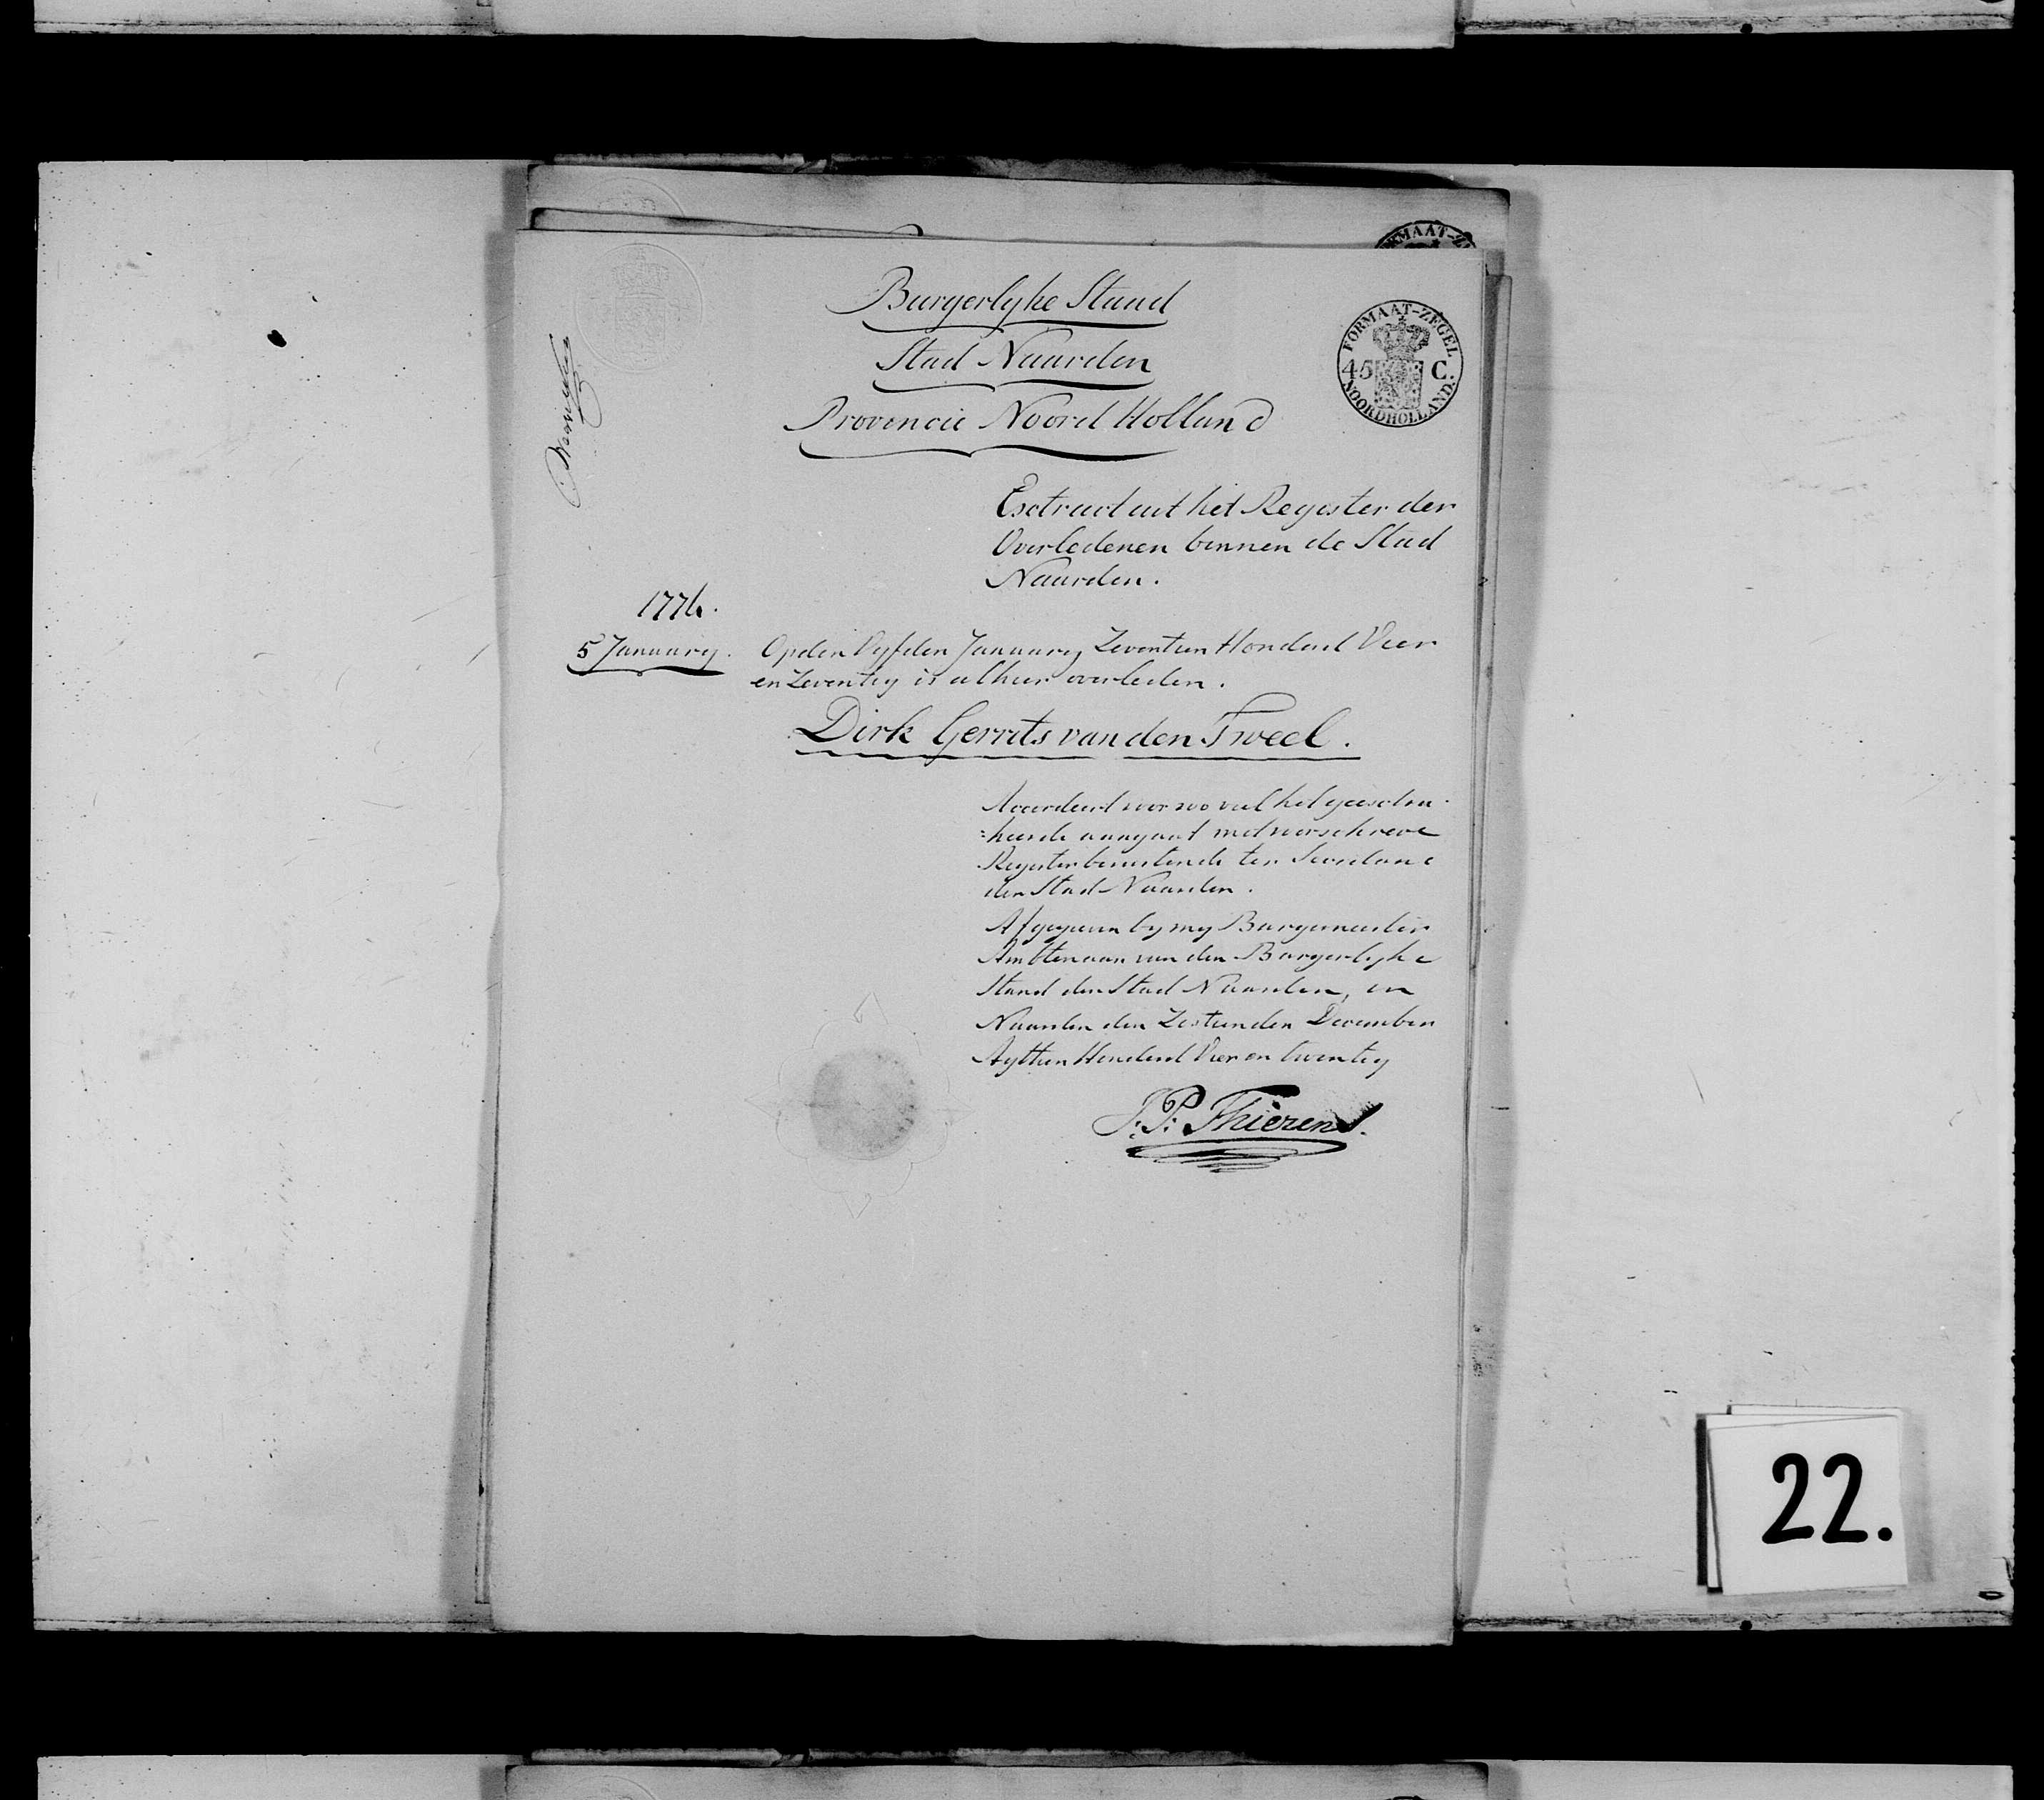 Burgerlyke Stand
Stad Naarden
Provincie Noord Holland
FORMAAT-ZEGEL
45 C.
NOORDHOLLAND.
Extract uit het Register der
Overledenen binnen de Stad
Naarden.
1774.
5 January.
Op den Vyfden January Zeventien Honderd Vier
en Zeventig is alhier overleden.
Dirk Gerrits van den Tweel.
Accordeert voor zo veel het geextra-
=heerde aangaat met voorschreve
Register berustende ter Secretarie
der Stad Naarden.
Afgegeven by my Burgemeester
Ambtenaar van den Burgerlyke
Stand der Stad Naarden, in
Naarden den Zestienden December
Agttien Honderd Vier en twentig
J: P: Thierens.
22.